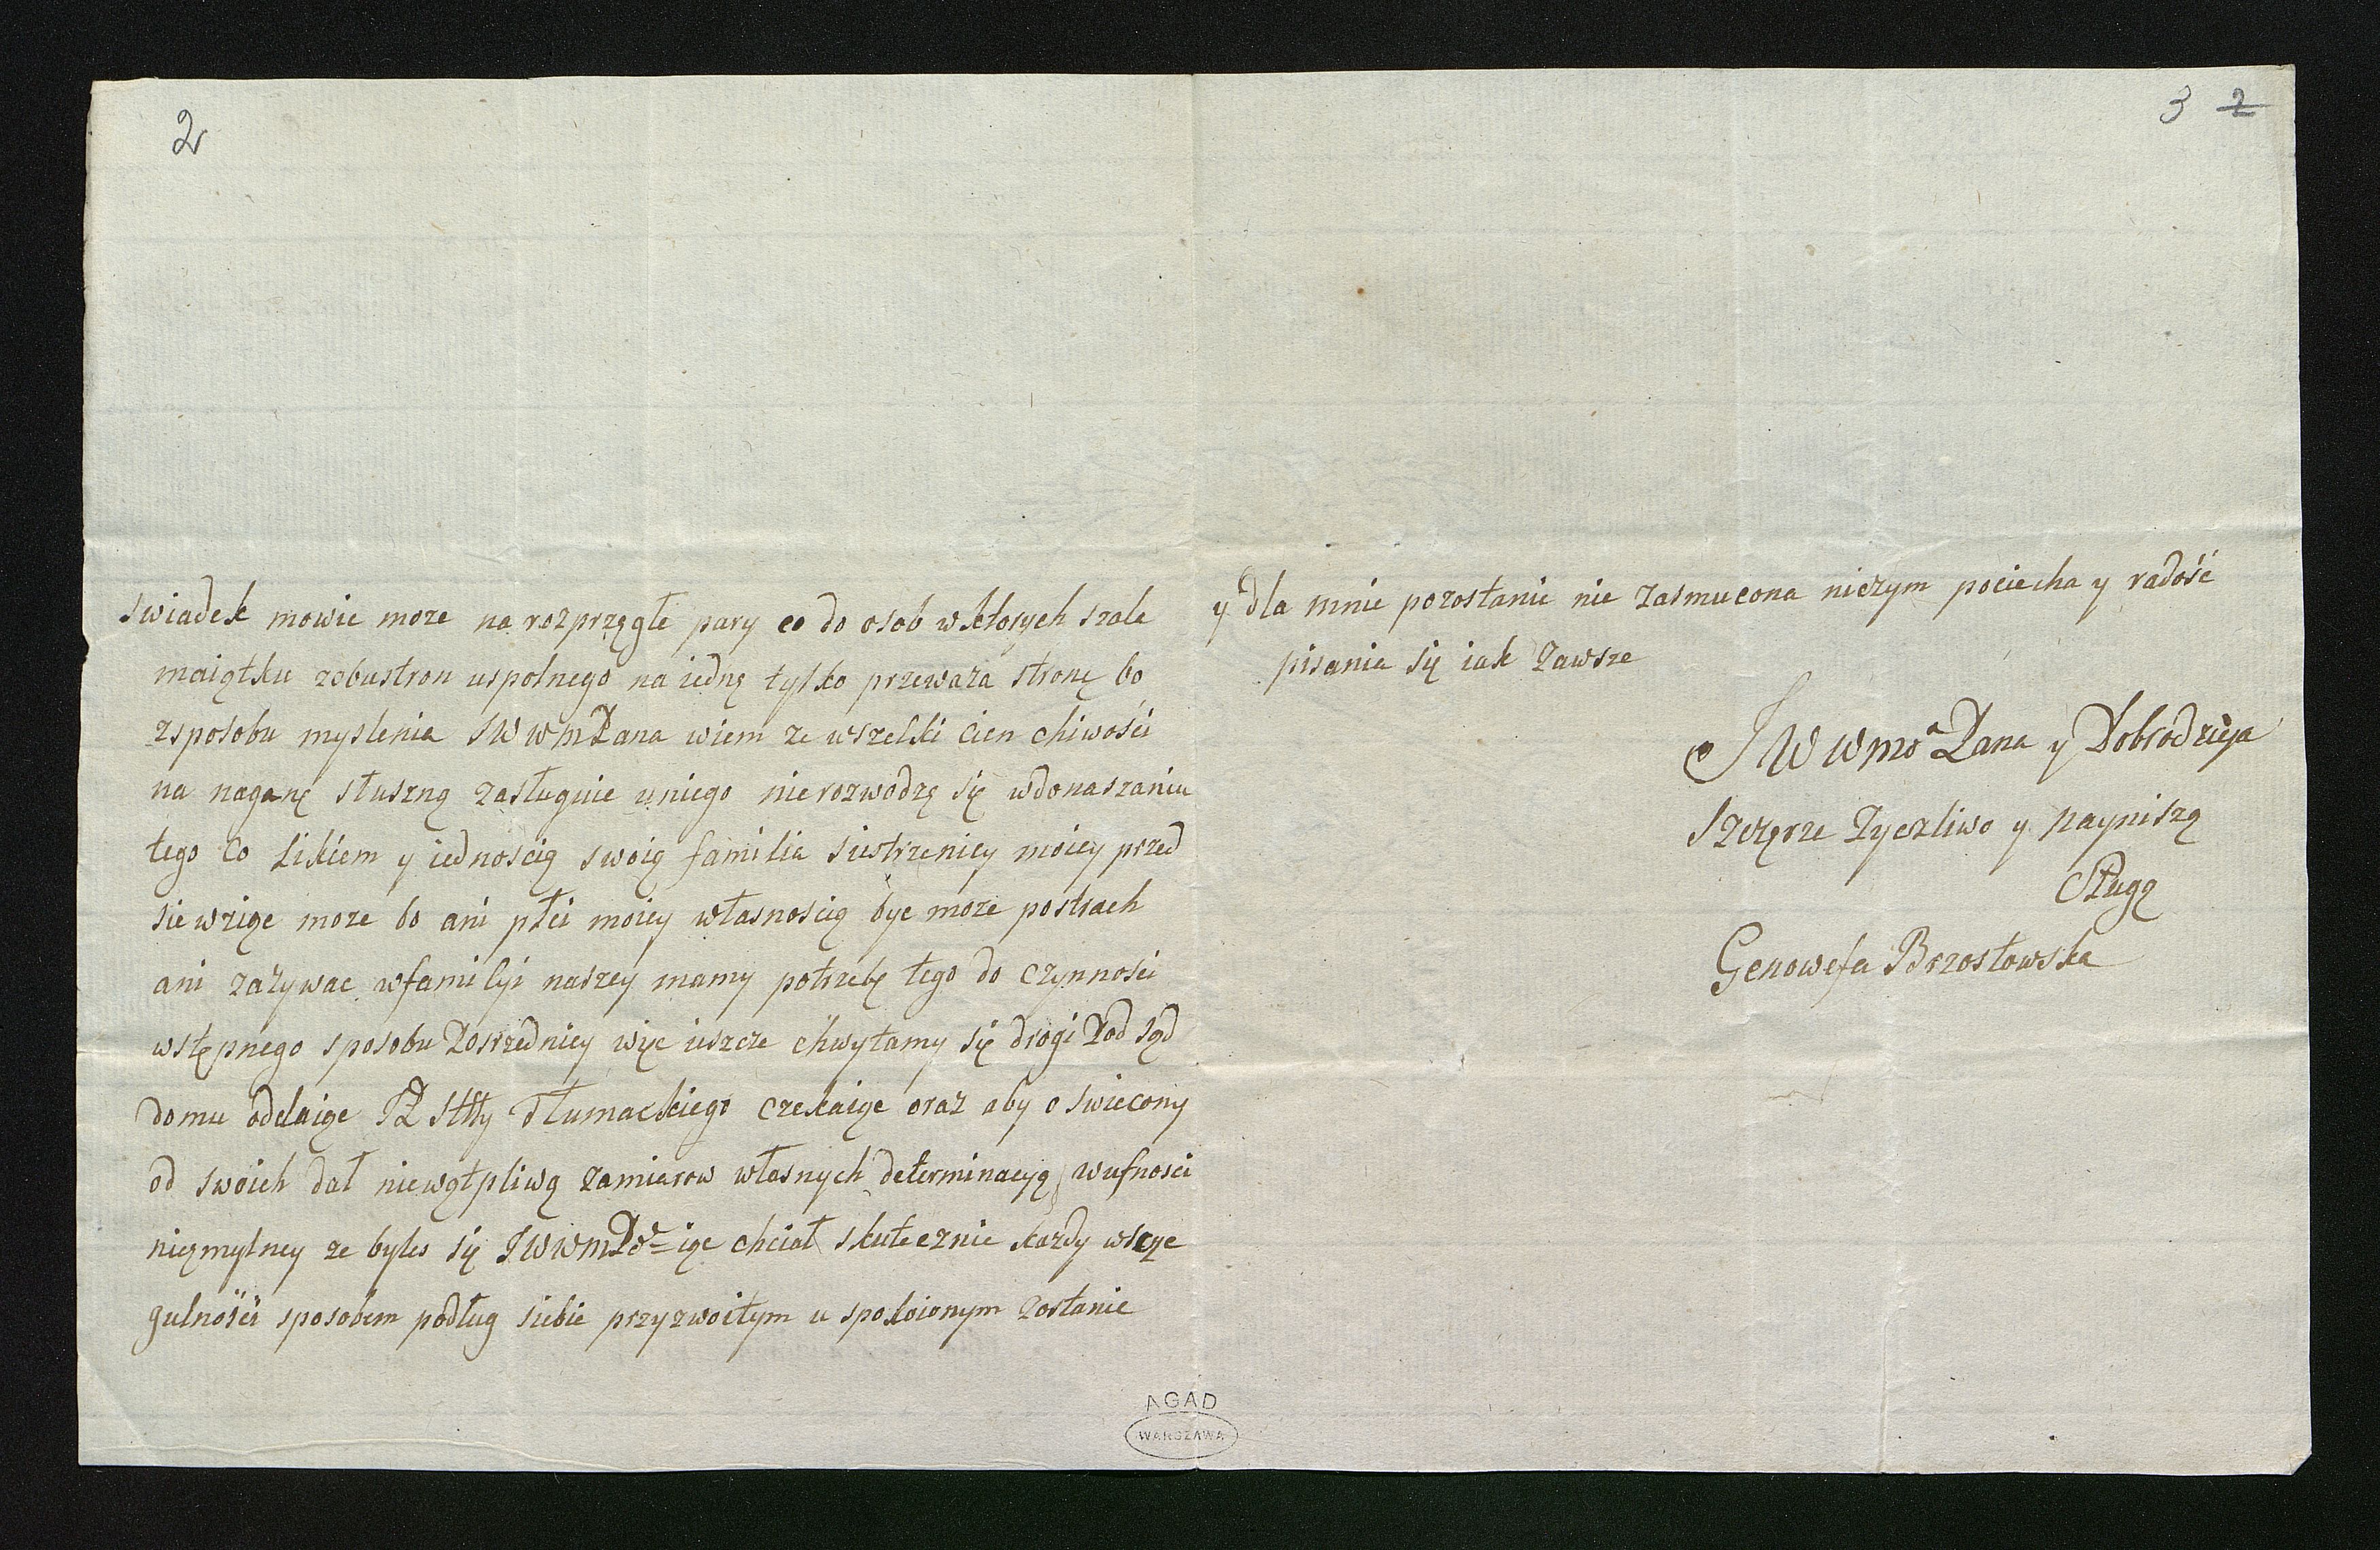 2
swiadek mowic moze na rozprzęgłe pary co do osob wktorych szale
maiątku zobustron uspolnego na iedną tylko przewaza stronę bo
zsposobu myslenia JWWmPana wiem ze wszelki cien chiwości
na naganę słuszną zasługuie uniego nierozwodzę się wdonaszaniu
tego co Likiem y iednoscią swoią familia siestrzenicy moiey przed
siewziąc moze bo ani płci moiey własnoscią byc moze postrach
ani zazywac wfamilyi naszey mamy potrzebę tego do czynności
wstępnego sposobu Posrzedniey więc ieszcze chwytamy się drogi Pod sąd
domu oddaiąc Tłumackiego czekaiąc oraz aby oswiecony
od swoich dał niewątpliwą zamiarow własnych determinacyą wufnosci
nieęmylney ze byles się JWWmPD iąc chciał skutecznie kazdy wszcze
gulności sposobem podług siebie przyzwoitym uspokoionym zostanie
3 2
y dla mnie pozostanie nie zasmucona niczym pociecha y radość
pisania się iak zawsze
JWWmo Pana y Dobrodzieja
Szczęrze zyczliwo y nayniszą
Sługą
Genowefa Brzostowska
AGAD
WARSZAWA